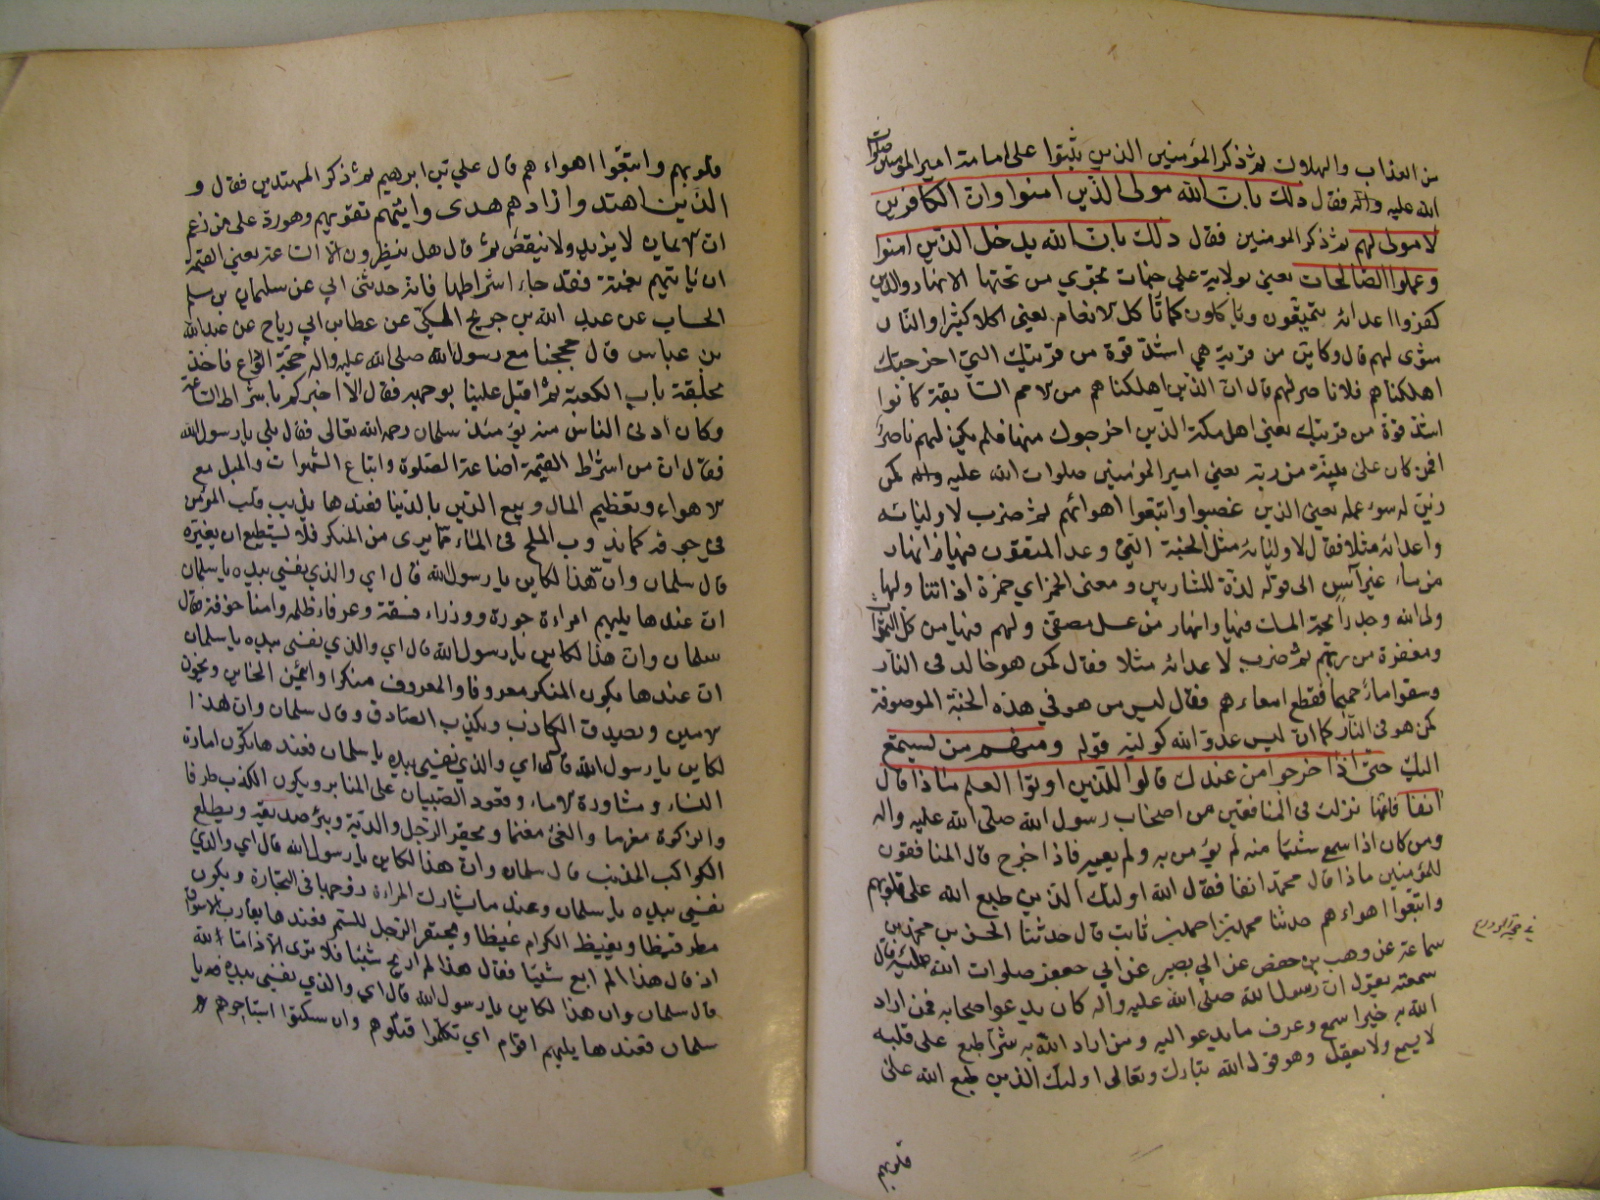 من العذاب والهلاك ثم ذكر المؤمنين الذين ثبتوا على امامة امير المؤمنين صلوات
الله عليه واله فقال ذلك بان الله مولى الذين امنوا وان الكافرين
لا مولى لهم ثم ذكر المومنين فقال ذلك بان الله يدخل الذين امنوا
وعملوا الصالحات يعني بولاية علي جنات تجري من تحتها الانهار والذين
كفروا اعدائه يتمتعون وياكلون كما تاكل الانعام يعني اكلا كثيرا والنار
مثوى لهم قال وكاين من قرية هي اشد قوة من قريتك التي اخرجتك
اهلكناهم فلا ناصر لهم قال ان الذين اهلكناهم من الامم السابقة كانوا
اشد قوة من قريتك يعني اهل مكة الذين اخرجوك منها فلم يكن لهم ناصر
افمن كان على بينة من ربه يعني امير المؤمنين صلوات الله عليه واله كمن
زين له سوء عمله يعني الذين غصبوا واتبعوا اهوائهم ثم ضرب لاوليائه
واعدائه مثلا فقال لاوليائه مثل الجنة التي وعد المتقون فيها انهار
من ماء غير آسن الى قوله لذة للشاربين ومعنى الخمر اي خمرة اذا تناولها
ولي الله وجد رائحة المسك فيها وانهار من عسل مصفى ولهم فيها من كل الثمرات
ومغفرة من ربهم ثم ضرب لاعدائه مثلا فقال كمن هو خالد في النار
وسقوا ماء حميما فقطع امعاءهم فقال ليس من هو في هذه الجنة الموصوفة
كمن هو في النار كما ان ليس عدو الله كوليه قوله ومنهم من يستمع
اليك حتى اذا خرجوا من عندك قالوا للذين اوتوا العلم ماذا قال
انفا فانها نزلت في المنافقين من اصحاب رسول الله صلى الله عليه واله
ومن كان اذا سمع شيئا منه لم يؤمن به ولم يعيه فاذا خرج قال المنافقون
للمؤمنين ماذا قال محمد انفا فقال الله اولئك الذين طبع الله على قلوبهم
واتبعوا اهواءهم حدثنا محمد بن احمد بن ثابت قال حدثنا الحسن بن محمد بن
سماعة عن وهيب بن حفص عن ابي بصير عن ابي جعفر صلوات الله عليه قال
سمعته يقول ان رسول الله صلى الله عليه واله كان يدعو اصحابه فمن اراد
الله به خيرا سمع وعرف ما يدعو اليه ومن اراد الله به شرا طبع على قلبه
لا يسمع ولا يعقل وهو قول الله تبارك وتعالى اولئك الذين طبع الله على
قلوبهم
قلوبهم واتبعوا اهواءهم قال علي بن ابرهيم ثم ذكر المهتدين فقال و
الذين اهتدوا زادهم هدى وايتهم تقويهم وهو رد على من زعم
ان الايمان لا يزيد ولا ينقص ثم قال هل ينظرون الا الساعة يعني القيمة
ان ياتيهم بغتة فقد جاء اشراطها فانه حدثني ابي عن سليمان بن مسلم
الخشاب عن عبد الله بن جريح المكي عن عطا بن ابي رياح عن عبد الله
بن عباس قال حججنا مع رسول الله صلى الله عليه واله حجة الوداع فاخذ
بحلقة باب الكعبة ثم اقبل علينا بوجهه فقال الا اخبركم باشراط الساعة
وكان ادنى الناس منه يومئذ سلمان رحمه الله تعالى فقال بلى يا رسول الله
فقال ان من اشراط القيمة اضاعة الصلوة واتباع الشهوات والميل مع
الاهواء وتعظيم المال وبيع الدين بالدنيا فعندها يذيب قلب المؤمن
في جوفه كما يذوب الملح في الماء مما يرى من المنكر فلا يستطيع ان يغيره
قال سلمان وان هذا لكاين يا رسول الله قال اي والذي نفسي بيده يا سلمان
ان عندها يليهم امراءة جورة ووزراء فسقة وعرفاء ظلمه وامناء خونة فقال
سلمان وان هذا لكاين يا رسول الله قال اي والذي نفسي بيده يا سلمان
ان عندها يكون المنكر معروفا والمعروف منكرا وائتمن الخاين ويخون
الامين ويصدق الكاذب ويكذب الصادق وقال سلمان وان هذا
لكاين يا رسول الله قال اي والذي نفسي بيده يا سلمان فعندها يكون امارة
النساء ومشاورة الاماء وقعود الصبيان على المنابر ويكون الكذب طرفا
والزكوة مغرما والفيء مغنما ويحقر الرجل والديه ويبر صديقه ويطلع
الكواكب المذنب قال سلمان وان هذا لكاين يا رسول الله قال اي والذي
نفسي بيده يا سلمان وعندها تشارك المراءة زوجها في التجارة ويكون
مطر قيظا ويغيظ الكرام غيظا ويحتقر الرجل المعسر فعندها يقارب الاسواق
اذ قال هذا لم ابع شيئا فقال هذا لم اربح شيئا فلا ترى الا ذاما لله
قال سلمان وان هذا لكاين يا رسول الله قال اي والذي نفسي بيده يا
سلمان فعندها يليهم اقوام اي تكلموا قتلوهم وان سكتوا استباحوهم